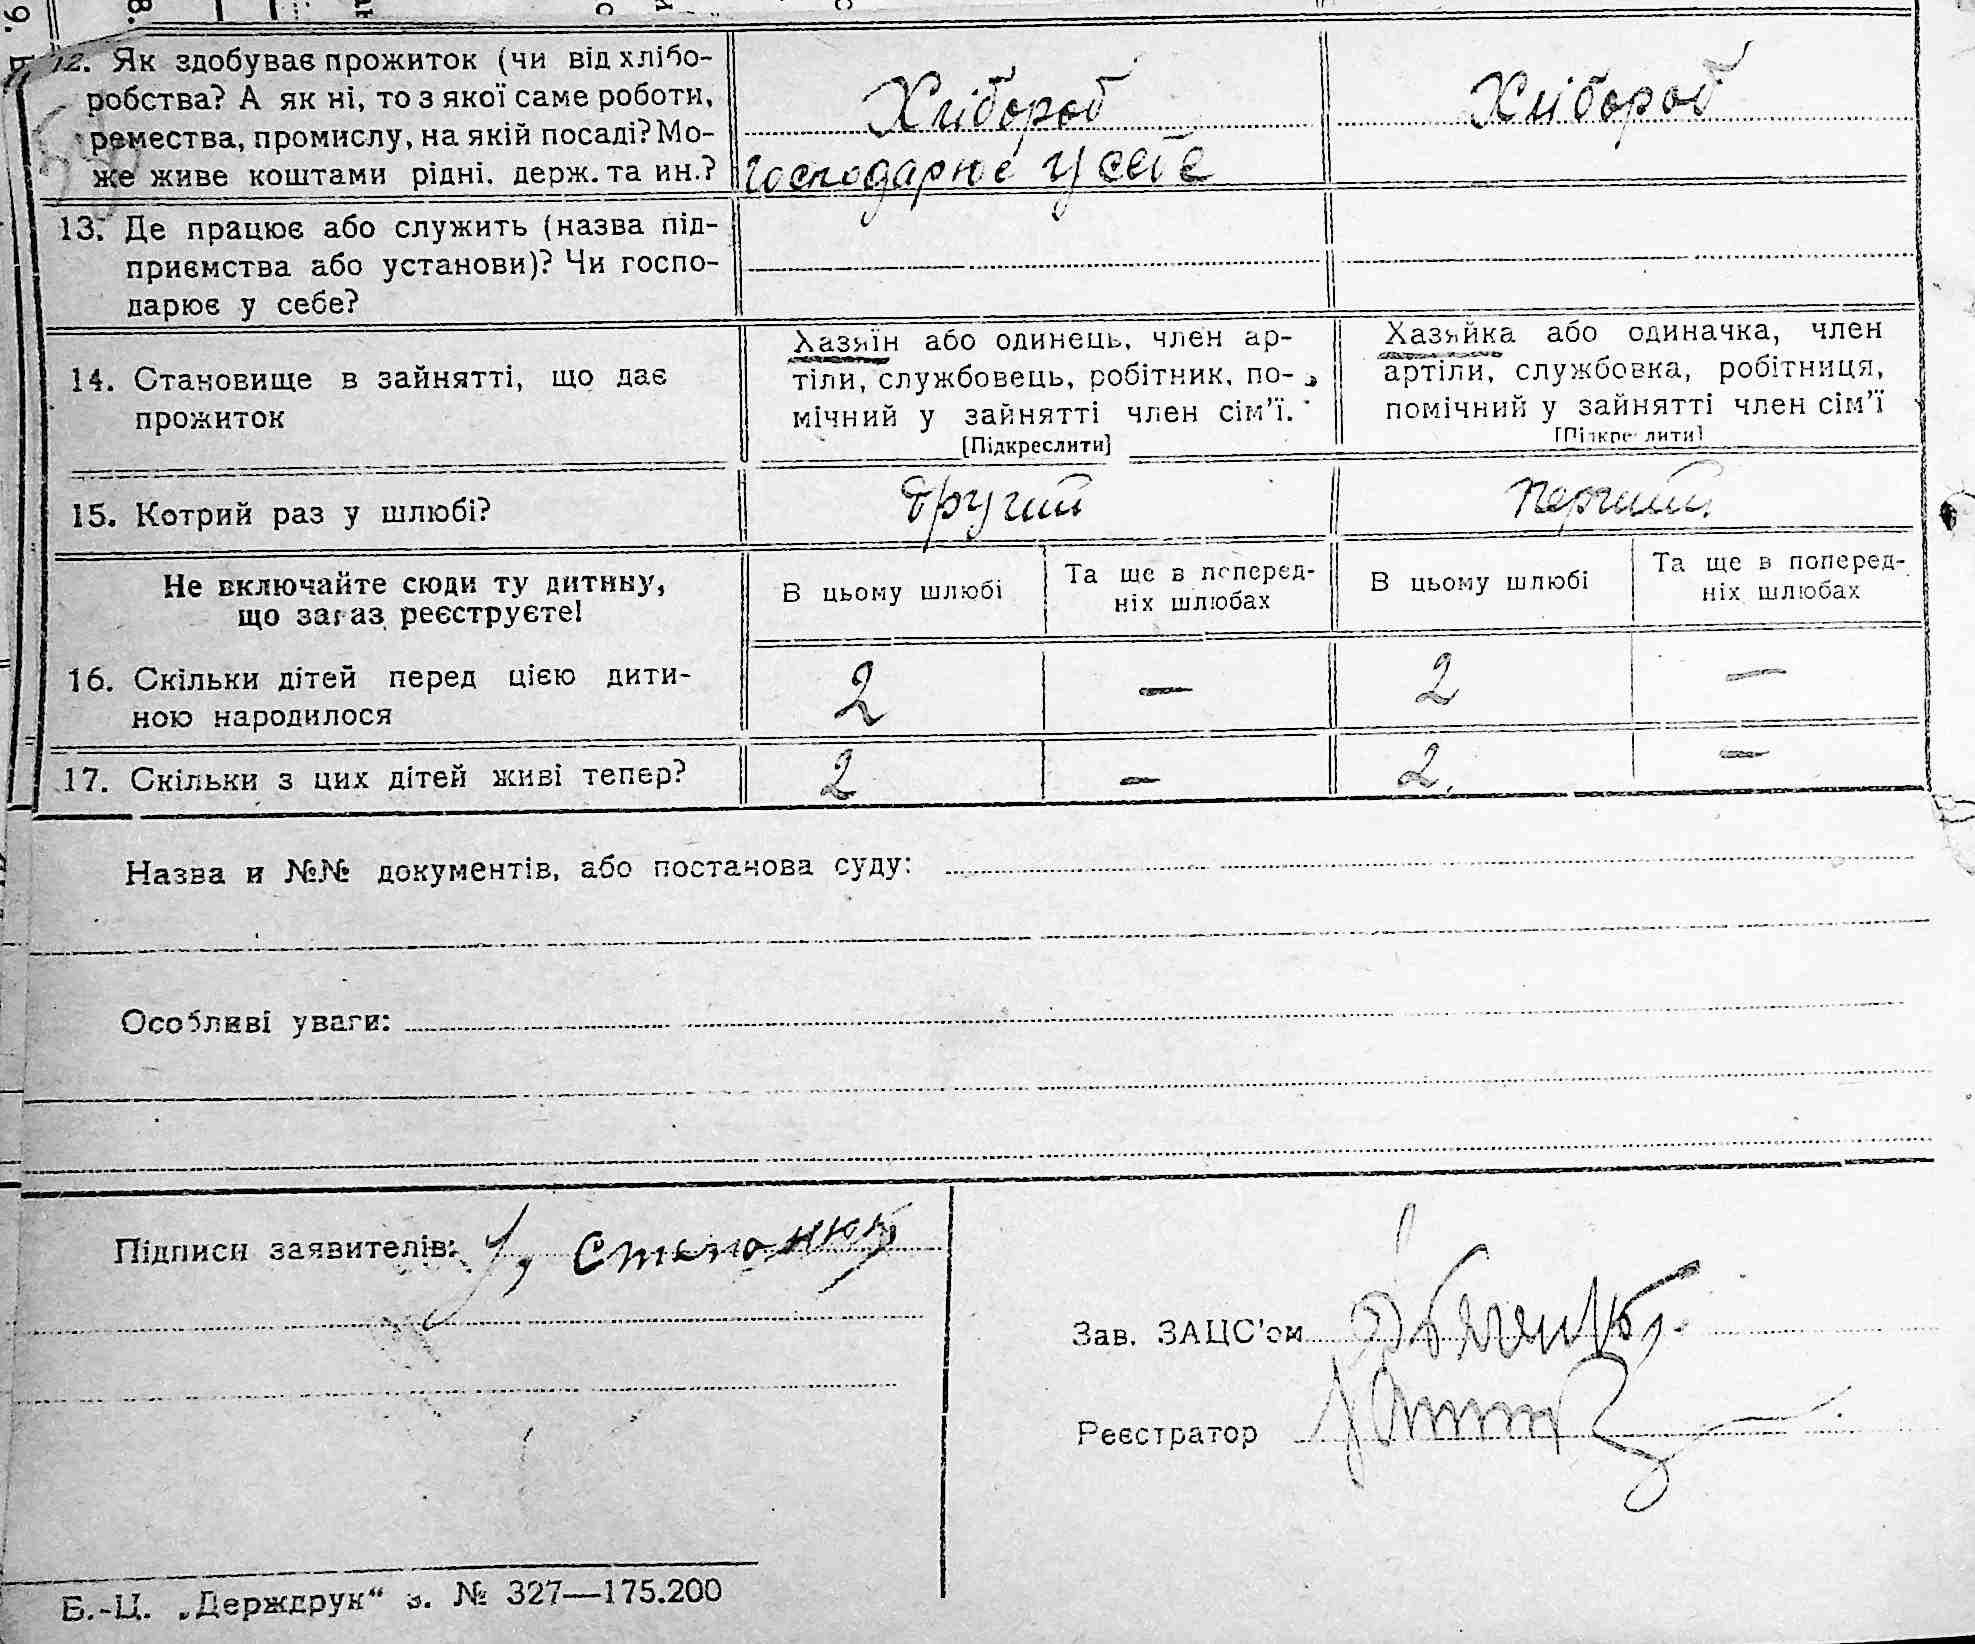 12. Як здобуває прожиток (чи від хлібо-
робства? А як ні, то з якої саме роботи,
ремества, промислу, на якій посаді? Мо-
же живе коштами рідні, держ. та ин.?
Хлібороб
Господарює у себе
Хлібороб
13. Де працює або служить (назва під-
приємства або установи)? Чи госпо-
дарює у себе?
14. Становище в зайнятті, що дає
прожиток
Хазяїн або одинець, член ар-
тіли, службовець, робітник, по-
мічний у зайнятті член сім’ї.
[Підкреслити]
Хазяйка або одиначка, член
артіли, службовка, робітниця,
помічний у зайнятті член сім’ї
[Підкреслити]
15. Котрий раз у шлюбі?
другий
перший
Не включайте сюди ту дитину,
що зараз реєструєте!
В цьому шлюбі
Та ще в поперед-
ніх шлюбах
В цьому шлюбі
Та ще в поперед-
ніх шлюбах
16. Скільки дітей перед цією дити-
ною народилося
2 — 2 —
17. Скільки з цих дітей живі тепер?
2 — 2. —
Назва и №№ документів, або постанова суду:
Особливі уваги:
Підписи заявителів: У, Степанюк
Зав. ЗАЦС’ом
Реєстратор
Б.-Ц. „Держдрук“ з. № 327—175.200